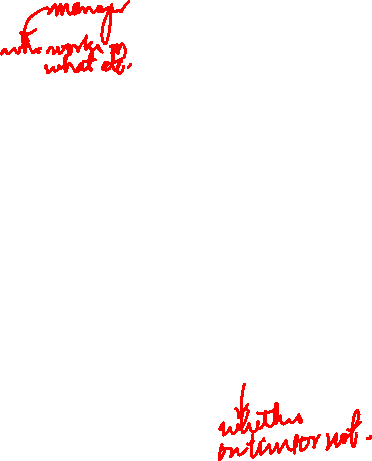 manager
who works on
what etc.
whether
on time or not.